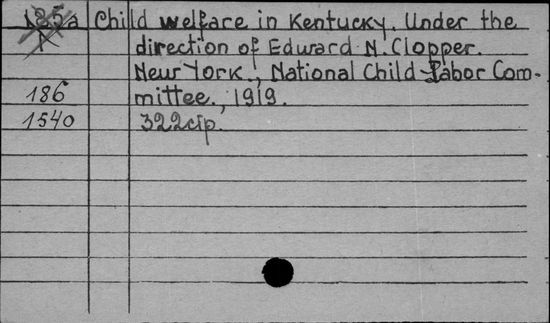 185a Child welfare in Kentucky. Under the
direction of Edward N. Clopper.
New York., National Child Labor Com-
186 mittee., 1919.
1540 322cip.